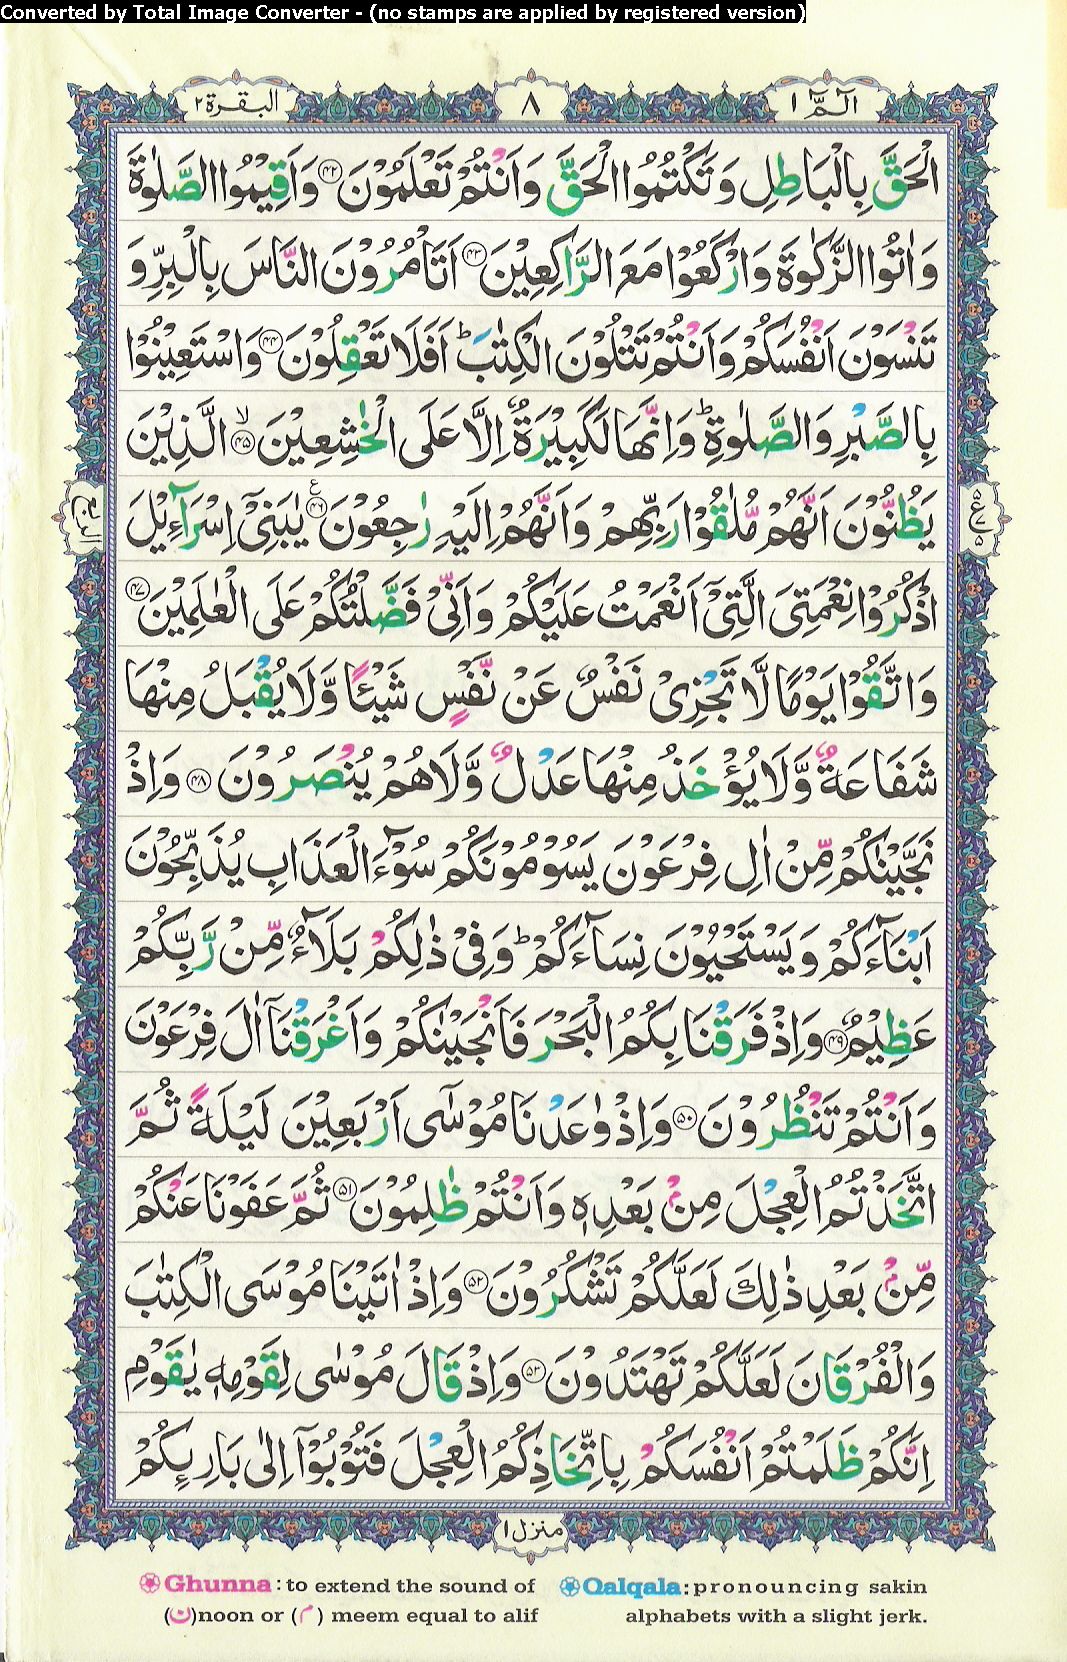 Converted by Total Image Converter - (no stamps are applied by registered version)
الٓمّٓ ۱
۸
البقرة ۲
الْحَقَّ بِالْبَاطِلِ وَ تَكْتُمُوا الْحَقَّ وَاَنْتُمْ تَعْلَمُوْنَ ۴۲ وَاَقِيْمُوا الصَّلٰوةَ
وَاٰتُوا الزَّكٰوةَ وَارْكَعُوْا مَعَ الرَّاكِعِيْنَ ۴۳ اَتَاْمُرُوْنَ النَّاسَ بِالْبِرِّ وَ
تَنْسَوْنَ اَنْفُسَكُمْ وَاَنْتُمْ تَتْلُوْنَ الْكِتٰبَ ؕ اَفَلَا تَعْقِلُوْنَ ۴۴ وَاسْتَعِيْنُوْا
بِالصَّبْرِ وَالصَّلٰوةِ ؕ وَاِنَّهَا لَكَبِيْرَةٌ اِلَّا عَلَى الْخٰشِعِيْنَ ۙ ۴۵ الَّذِيْنَ
يَظُنُّوْنَ اَنَّهُمْ مُّلٰقُوْا رَبِّهِمْ وَاَنَّهُمْ اِلَيْهِ رٰجِعُوْنَ ۴۶ ع يٰبَنِيْٓ اِسْرَآءِيْلَ
اذْكُرُوْا نِعْمَتِيَ الَّتِيْٓ اَنْعَمْتُ عَلَيْكُمْ وَاَنِّيْ فَضَّلْتُكُمْ عَلَى الْعٰلَمِيْنَ ۴۷
وَاتَّقُوْا يَوْمًا لَّا تَجْزِيْ نَفْسٌ عَنْ نَّفْسٍ شَيْـًٔا وَّلَا يُقْبَلُ مِنْهَا
شَفَاعَةٌ وَّلَا يُؤْخَذُ مِنْهَا عَدْلٌ وَّلَا هُمْ يُنْصَرُوْنَ ۴۸ وَاِذْ
نَجَّيْنٰكُمْ مِّنْ اٰلِ فِرْعَوْنَ يَسُوْمُوْنَكُمْ سُوْٓءَ الْعَذَابِ يُذَبِّحُوْنَ
اَبْنَآءَكُمْ وَيَسْتَحْيُوْنَ نِسَآءَكُمْ ؕ وَفِيْ ذٰلِكُمْ بَلَآءٌ مِّنْ رَّبِّكُمْ
عَظِيْمٌ ۴۹ وَاِذْ فَرَقْنَا بِكُمُ الْبَحْرَ فَاَنْجَيْنٰكُمْ وَاَغْرَقْنَآ اٰلَ فِرْعَوْنَ
وَاَنْتُمْ تَنْظُرُوْنَ ۵۰ وَاِذْ وٰعَدْنَا مُوْسٰٓى اَرْبَعِيْنَ لَيْلَةً ثُمَّ
اتَّخَذْتُمُ الْعِجْلَ مِنْۢ بَعْدِهٖ وَاَنْتُمْ ظٰلِمُوْنَ ۵۱ ثُمَّ عَفَوْنَا عَنْكُمْ
مِّنْۢ بَعْدِ ذٰلِكَ لَعَلَّكُمْ تَشْكُرُوْنَ ۵۲ وَاِذْ اٰتَيْنَا مُوْسَى الْكِتٰبَ
وَالْفُرْقَانَ لَعَلَّكُمْ تَهْتَدُوْنَ ۵۳ وَاِذْ قَالَ مُوْسٰى لِقَوْمِهٖ يٰقَوْمِ
اِنَّكُمْ ظَلَمْتُمْ اَنْفُسَكُمْ بِاتِّخَاذِكُمُ الْعِجْلَ فَتُوْبُوْٓا اِلٰى بَارِىِٕكُمْ
منزل ۱
Ghunna : to extend the sound of (ن)noon or (م) meem equal to alif
Qalqala: pronouncing sakin alphabets with a slight jerk.